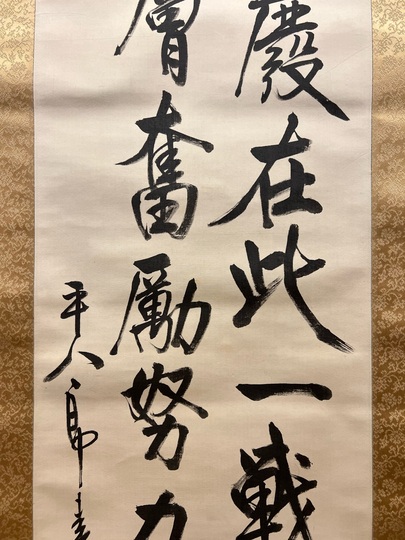 廢在此一戰
層奮勵努力
平八郎書